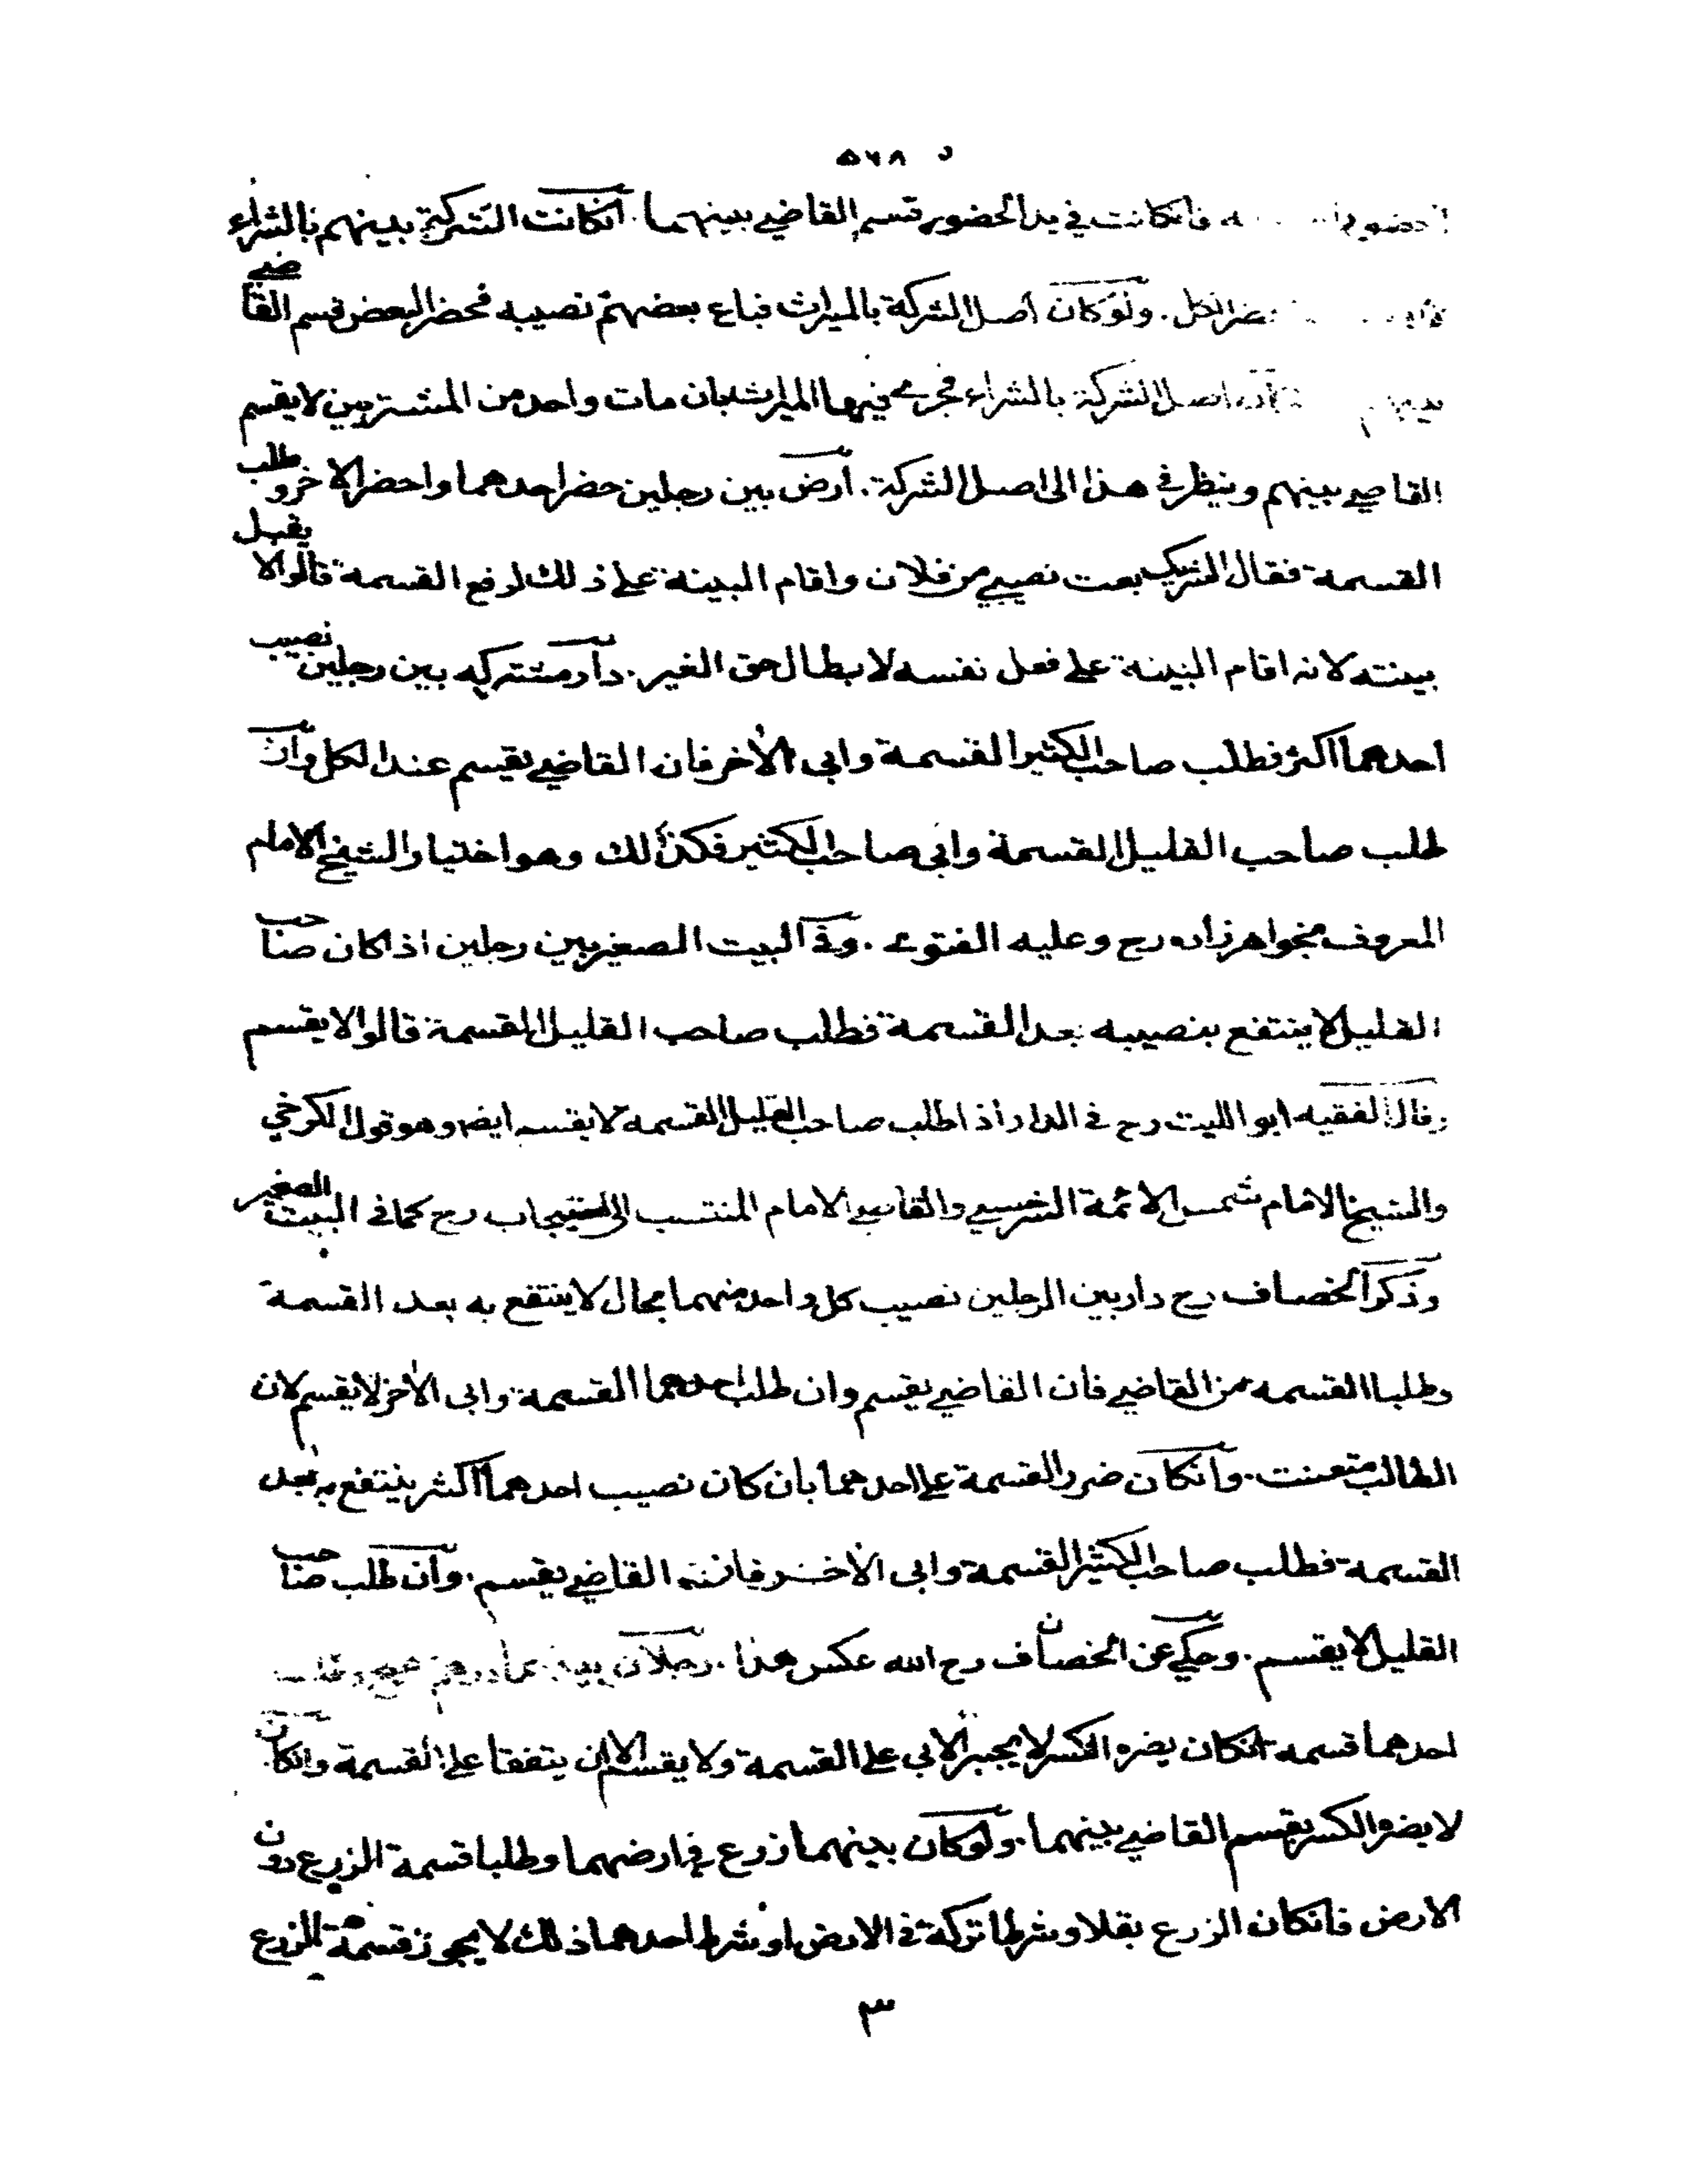 د ٥٦٨
فانكانت في يد الحضور قسم القاضي بينهما. انكانت الشركة بينهم بالشراء
الكل. ولوكان أصل الشركة بالميراث فباع بعضهم نصيبه فحضر البعض قسم القاضي
بينهم اصل الشركة بالشراء فجرى فيها الميراث بان مات واحد من المشتريين لا يقسم
القاضي بينهم وينظر في هذا الى اصل الشركة. ارض بين رجلين حضر احدهما واحضر الاخر وطلب
القسمة فقال الشريك بعت نصيبي من فلان واقام البينة على ذلك لدفع القسمة قالوا لا يقبل
بينته لانه اقام البينة على فعل نفسه لابطال حق الغير. دار مشتركه بين رجلين نصيب
احدهما اكثر فطلب صاحب الكثير القسمة وابى الاخر فان القاضي يقسم عند الكل وان
طلب صاحب القليل القسمة وابى صاحب الكثير فكذلك وهو اختيار الشيخ الامام
المعروف بخواهرزاده رح وعليه الفتوى. وفي البيت الصغير بين رجلين اذا كان صاحب
القليل لا ينتفع بنصيبه بعد القسمة فطلب صاحب القليل القسمة قالوا لا يقسم
وقال الفقيه ابو الليث رح في الدار اذا طلب صاحب القليل القسمة لا يقسم ايضا وهو قول الكرخي
والشيخ الامام شمس الائمة السرخسي والقاضي الامام المنتسب الى اسبيجاب رح كما في البيت الصغير
وذكر الخصاف رح دار بين الرجلين نصيب كل واحد منهما بحال لا ينتفع به بعد القسمة
وطلبا القسمه من القاضي فان القاضي يقسم وان طلب احدهما القسمة وابى الاخر لا يقسم لان
الطالب متعنت. وانكان ضرر القسمة على احدهما بان كان نصيب احدهما اكثر ينتفع به بعد
القسمة فطلب صاحب الكثير القسمة وابى الاخر فانه القاضي يقسم. وان طلب صاحب
القليل لا يقسم. وحكي عن الخصاف رح الله عكس هذا. رجلان بينهما درهم صحيح وطلب
احدهما قسمه انكان يضره الكسر لا يجبر الابي على القسمة ولا يقسم الا ان يتفقا على القسمة وانكان
لا يضره الكسر يقسم القاضي بينهما. ولوكان بينهما زرع في ارضهما وطلبا قسمة الزرع دون
الارض فانكان الزرع بقلا وشرطا تركه في الارض او شرط احدهما ذلك لا يجوز قسمة الزرع
٣